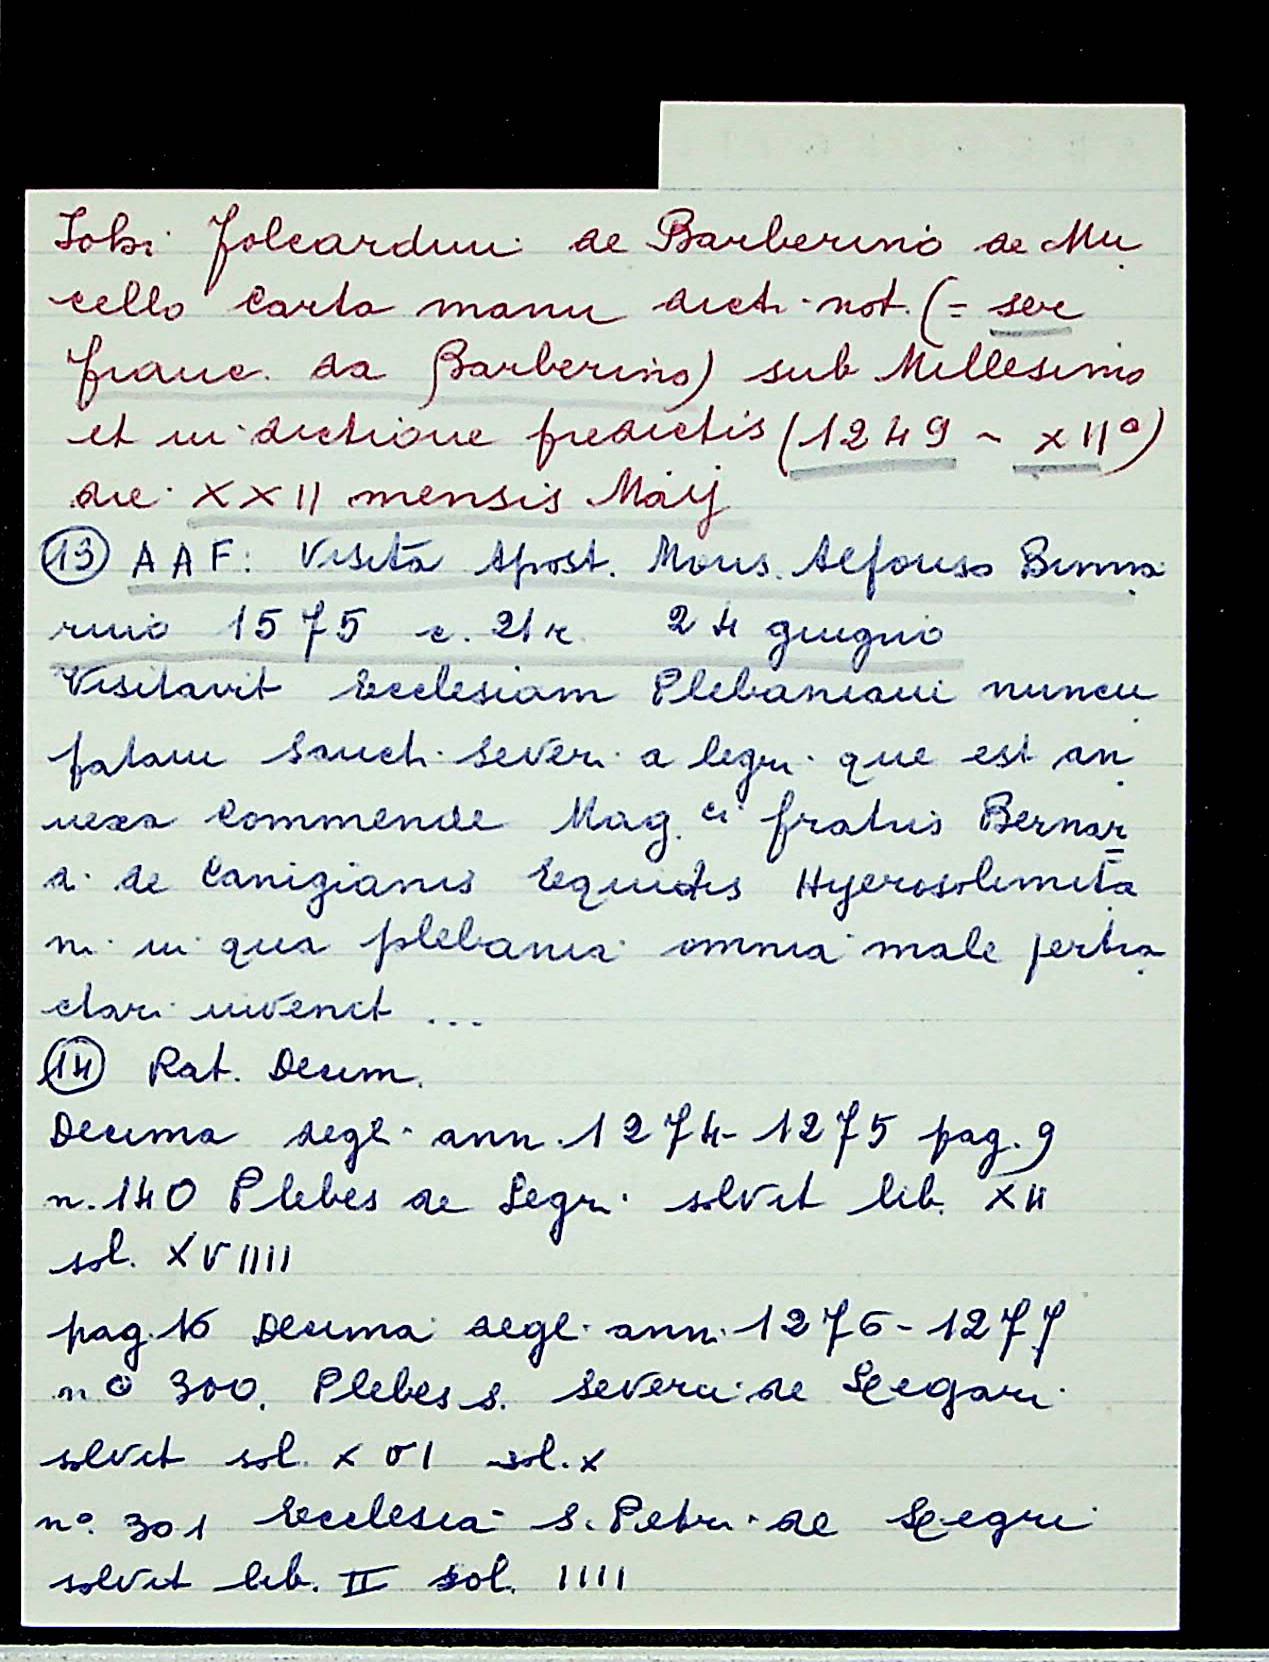 Iobi Folcarduii de Barberino de Mu
cello carta manu dicti not. (= ser
franc. da Barberino) sub Millesimo
et indictione predictis (1249 - XIIº)
die XXII mensis Maij
(13) AAF: Visita Apost. Mons. Alfonso Binna
rino 1575 c. 21r. 24 giugno
Visitavit Ecclesiam Plebaniam nuncu
patam Sancti Severi a legri que est an
nexa Commende Mag.ci fratris Bernar
di de Canigianis Equitis Hyerosolimita
ni in qua plebania omnia male pertra
ctari invenit ...
(14) Rat. Decim.
Decima degl. ann. 1274-1275 pag. 9
n. 140 Plebes de Legri solvit lib. XII
sol. XVIIII
pag. 16 Decima degl. ann. 1276-1277
nº 300. Plebes s. Severi de Legari
solvit sol. XVI sol. X
nº. 301 Ecclesia S. Petri de Legri
solvit lib. II sol. IIII